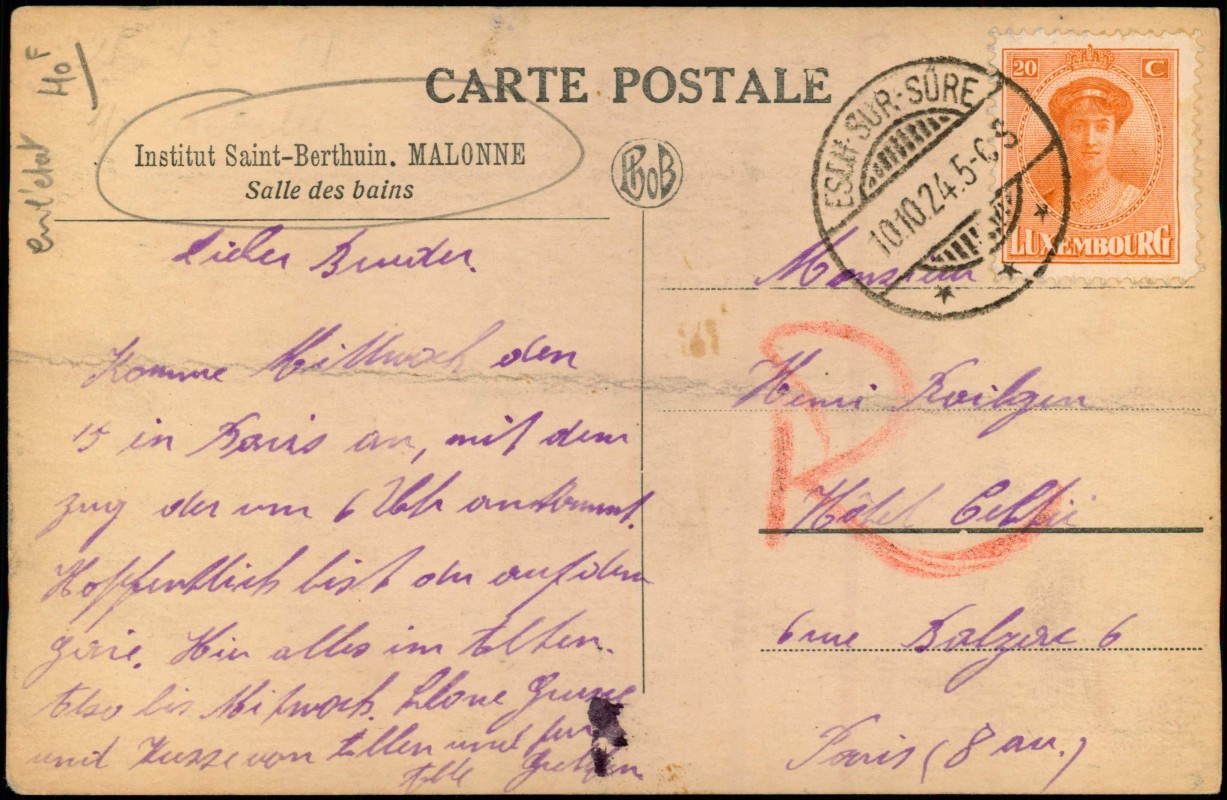 en l'état 40F
CARTE POSTALE
Institut Saint-Berthuin. MALONNE
Salle des bains
PhoB
ESCH-SUR-SÛRE
10.10.24.5-6 S
20 C
LUXEMBOURG
Lieber Bruder.
Komme Mittwoch den
15 in Paris an, mit dem
zug der um 6 Uhr ankommt.
Hoffentlich bist du auf dem
gare. Hier alles im Alten.
Also bis Mitwoch.
und Küsse von Allen und
Alle
Monsieur
Henri
R
Hôtel Celtic
6 rue Balzac 6
Paris (8 arr.)